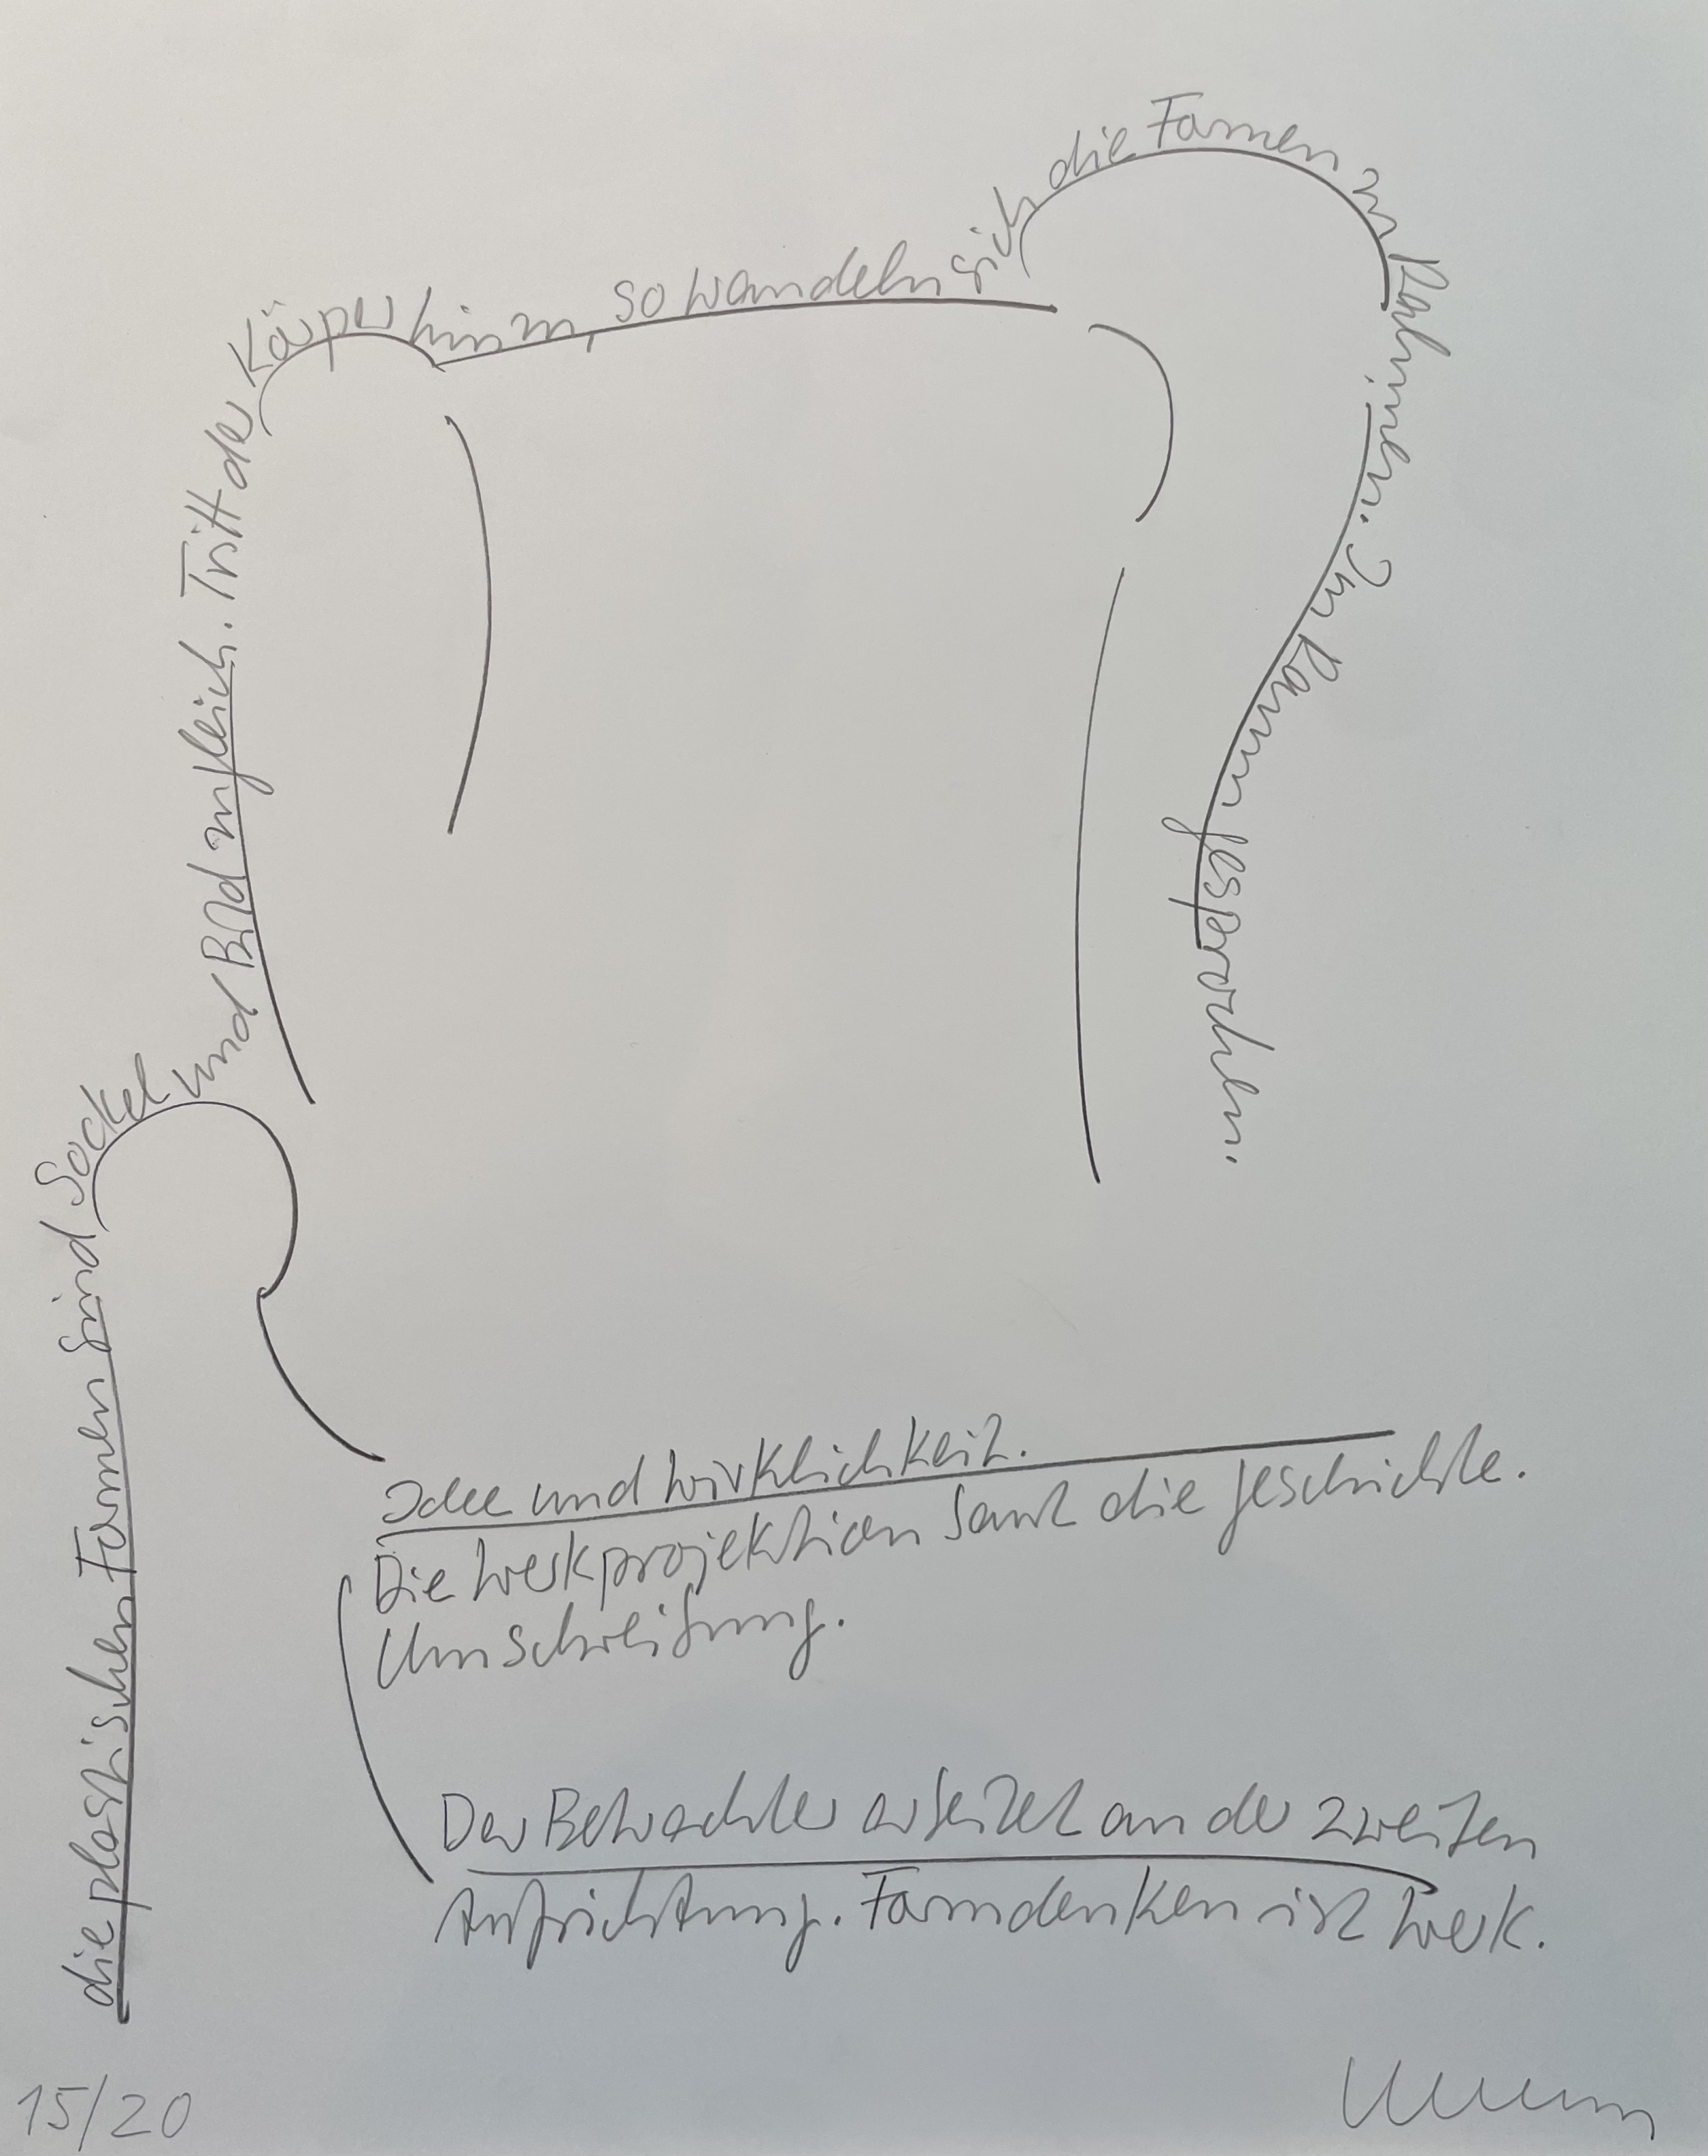 die plastischen Formen sind Sockel und Bild zugleich. Tritt der Körper hinzu, so wandeln sich die Formen zu Rahmen. Im Raum gesprochen.
Idee und Wirklichkeit.
Die Werkprojektion samt die geschichte.
Umschreibung.
Der Betrachter arbeitet an der zweiten
Aufrichtung. Formdenken ist Werk.
15/20